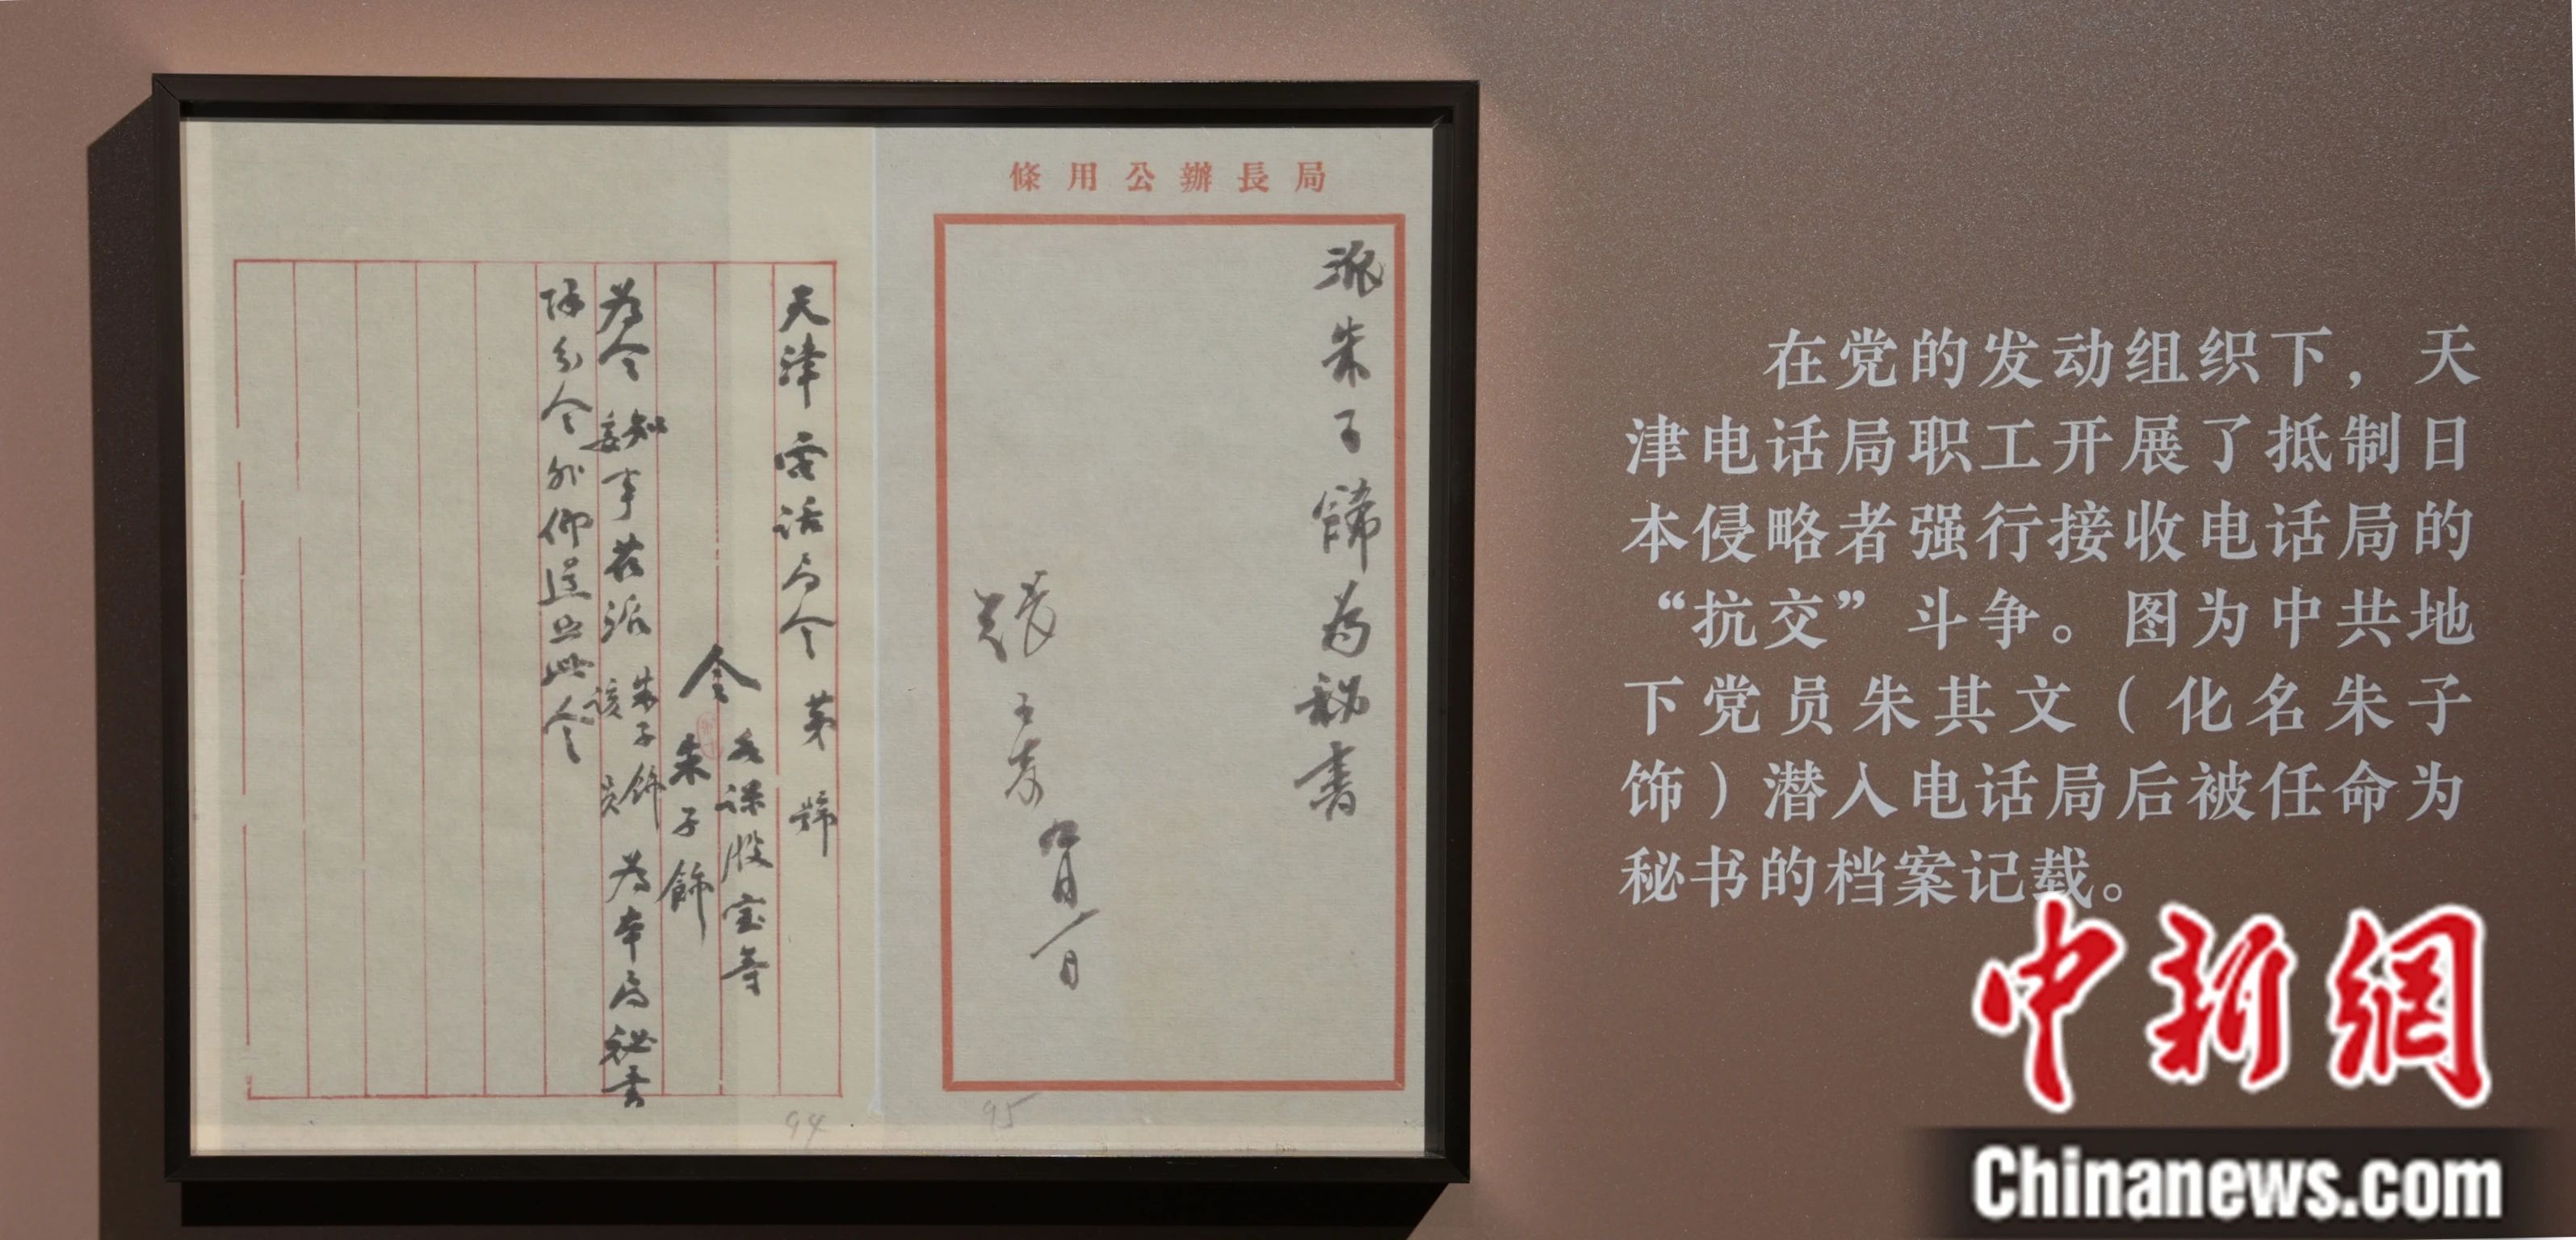 條用公辦長局
派朱子飾為秘書
張子奇
九月一日
天津電話局令 第 號
令
各課股室等
朱子飾
為令
知
委
事茲派
朱子飾
該 員
為本局秘書
除分令外仰遵照此令
94
95
在党的发动组织下，天
津电话局职工开展了抵制日
本侵略者强行接收电话局的
“抗交”斗争。图为中共地
下党员朱其文（化名朱子
饰）潜入电话局后被任命为
秘书的档案记载。
中新網
Chinanews.com